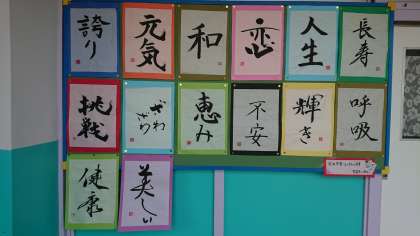 誇り
元気
和
恋
人生
長寿
挑戦
ざわ
ざわ
恵み
不安
輝き
呼吸
健康
美しい